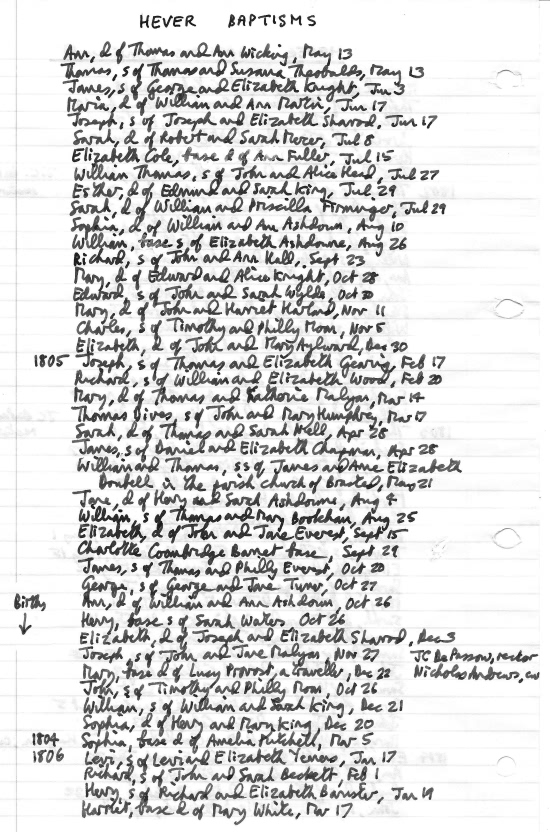 HEVER BAPTISMS
Ann, d of Thomas and Ann Wicking, May 13
Thomas, s of Thomas and Susana Theobalds, May 13
James, s of George and Elizabeth Knight, Jun 3
Maria, d of William and Ann Martin, Jun 17
Joseph, s of Joseph and Elizabeth Sharod, Jun 17
Sarah, d of Robert and Sarah Mercer, Jul 8
Elizabeth Cole, base d of Ann Fuller, Jul 15
William Thomas, s of John and Alice Head, Jul 27
Esther, d of Edmund and Sarah King, Jul 29
Sarah, d of William and Priscilla Firminger, Jul 29
Sophia, d of William and Ann Ashdown, Aug 10
William, base s of Elizabeth Ashdowne, Aug 26
Richard, s of John and Ann Hall, Sept 23
Mary, d of Edward and Alice Knight, Oct 28
Edward, s of John and Sarah Wylds, Oct 30
Mary, d of John and Harriet Harland, Nov 11
Charles, s of Timothy and Philly Moon, Nov 5
Elizabeth, d of John and Mary Aylward, Dec 30
1805 Joseph, s of Thomas and Elizabeth Gearing, Feb 17
Richard, s of William and Elizabeth Wood, Feb 20
Mary, d of Thomas and Katherine Malyan, Mar 14
Thomas Vives, s of John and Mary Humphrey, Mar 17
Sarah, d of Thomas and Sarah Hell, Apr 28
James, s of Daniel and Elizabeth Chapman, Apr 28
William and Thomas, ss of James and Anne Elizabeth
Doubell in the parish church of Brasted, May 21
Jane, d of Henry and Sarah Ashdowne, Aug 4
William, s of Thomas and Mary Bookham, Aug 25
Elizabeth, d of John and Jane Everest, Sept 15
Charlotte Coombridge Barnet base, Sept 29
James, s of Thomas and Philly Everest, Oct 20
George, s of George and Jane Turner, Oct 27
Births Ann, d of William and Ann Ashdown, Oct 26
Henry, base s of Sarah Waters Oct 26
Elizabeth, d of Joseph and Elizabeth Sharod, Dec 3
Joseph, s of John and Jane Malyan, Nov 27 JC DePassow, rector
Mary, base d of Lucy Provost, a traveller, Dec 22 Nicholas Andrews, cw
John, s of Timothy and Philly Moon, Oct 26
William, s of William and Sarah King, Dec 21
Sophia, d of Henry and Mary King, Dec 20
1804 Sophia, base d of Amelia Mitchell, Mar 5
1806 Levi, s of Levi and Elizabeth Yemens, Jan 17
Richard, s of John and Sarah Beckett, Feb 1
Henry, s of Richard and Elizabeth Banister, Jan 19
Harriet, base d of Mary White, Mar 17